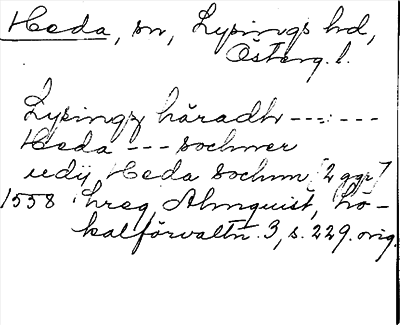 Heda, sn, Lysings hd,
Österg. l.
Lysingz häradh --- ---
Heda --- sochner
udij Heda sochnn [2 ggr]
1558 hreg Almquist, Lo-
kalförvaltn. 3, s. 229. orig.